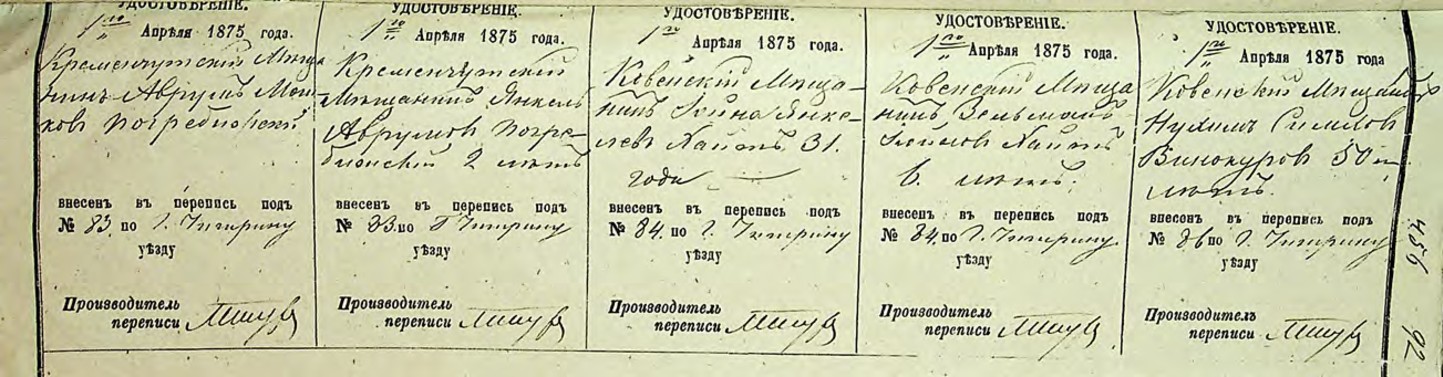 УДОСТОВѢРЕНІЕ.
1го Апрѣля 1875 года.
Кременчугскій Мѣща-
нинъ Аврумъ Мош-
ковъ Погребійскій
внесенъ въ перепись подъ
№ 83. по г. Чигирину
уѣзду
Производитель
переписи
УДОСТОВѢРЕНІЕ.
1го Апрѣля 1875 года.
Кременчугскій
Мѣщанинъ Янкель
Аврумовъ Погре-
бійскій 2 лѣтъ
внесенъ въ перепись подъ
№ 83. по Г Чигирину
уѣзду
Производитель
переписи
УДОСТОВѢРЕНІЕ.
1го Апрѣля 1875 года.
Ковенскій Мѣща-
нинъ Янке-
левъ Хаитъ 31.
года
внесенъ въ перепись подъ
№ 84. по г. Чигирину
уѣзду
Производитель
переписи
УДОСТОВѢРЕНІЕ.
1го Апрѣля 1875 года.
Ковенскій Мѣща
нинъ Зельманъ
Хаитъ
6. лѣтъ.
внесенъ въ перепись подъ
№ 84. по Г. Чигирину.
уѣзду
Производитель
переписи
УДОСТОВѢРЕНІЕ.
1го Апрѣля 1875 года
Ковенскій Мѣщанинъ
Нухимъ
Винокуровъ 50ти
лѣтъ.
внесенъ въ перепись подъ
№ 86 по г. Чигирину
уѣзду
Производитель
переписи
456
92